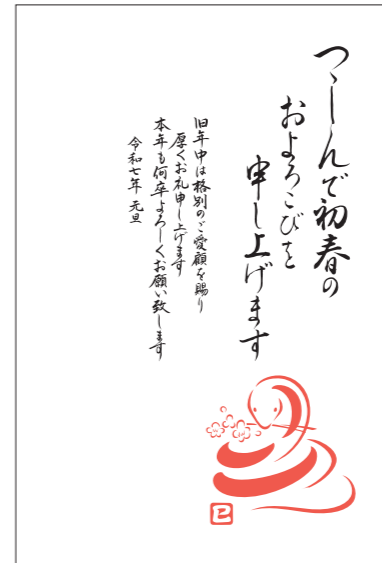 つゝしんで初春の
およろこびを
申し上げます
旧年中は格別のご愛顧を賜り
厚くお礼申し上げます
本年も何卒よろしくお願い致します
令和七年 元旦
巳